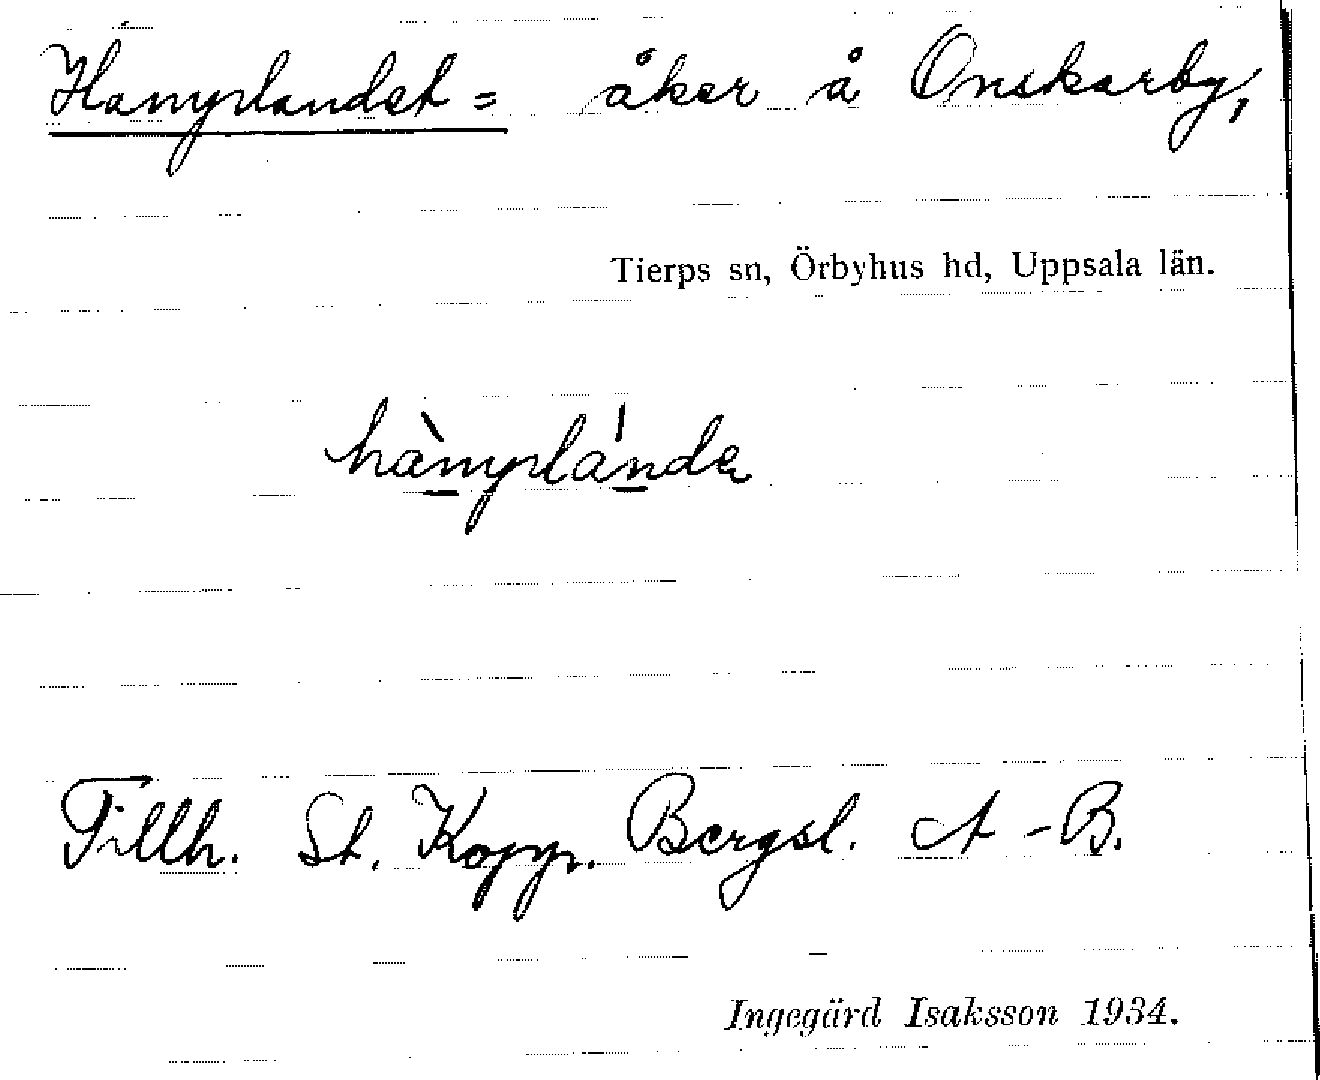 Hamplandet = åker å Onskarby,
Tierps sn, Örbyhus hd, Uppsala län.
hàmplánde
Tillh. St. Kopp. Bergsl. A-B.
Ingegärd Isaksson 1934.